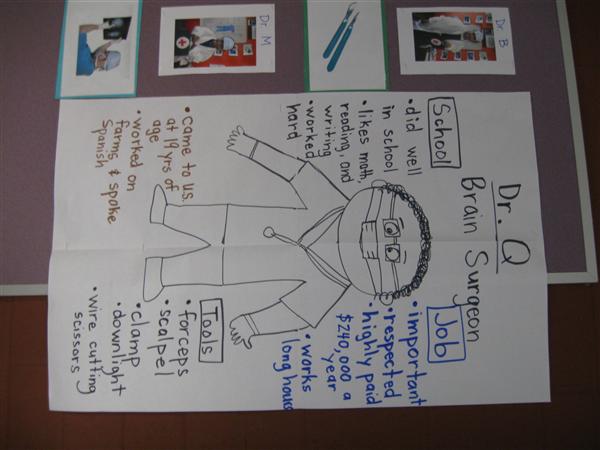 Dr. M
Dr. B
Dr. Q
Brain Surgeon
School
• did well
in school
• likes math,
reading, and
writing
• worked
hard
Job
• important
• respected
• highly paid
$240,000 a
year
• works
long hours
• came to U.S.
at 19 yrs of
age
• worked on
farms & spoke
Spanish
Tools
• forceps
• scalpel
• clamp
• downlight
• wire cutting
scissors